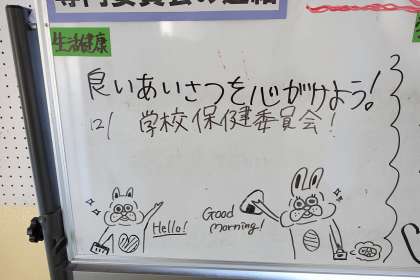 専門委員会の連絡
生活健康
良いあいさつを心がけよう!
12/ 学校保健委員会!
Hello!
Good
morning!